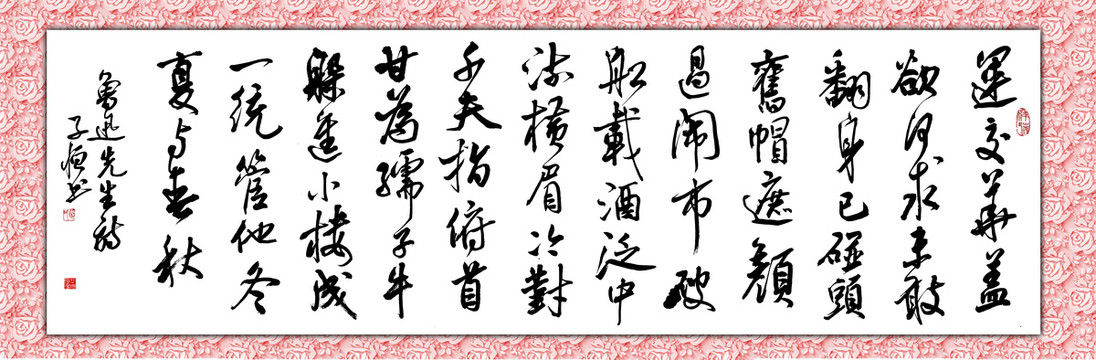 運交華蓋
欲何求未敢
翻身已碰頭
舊帽遮顏
過鬧市破
船載酒泛中
流橫眉冷對
千夫指俯首
甘為孺子牛
躲進小樓成
一統管他冬
夏与春秋
魯迅先生詩
子恒书